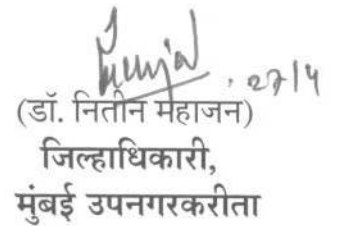 27/4
(डॉ. नितीन महाजन)
जिल्हाधिकारी,
मुंबई उपनगरकरीता